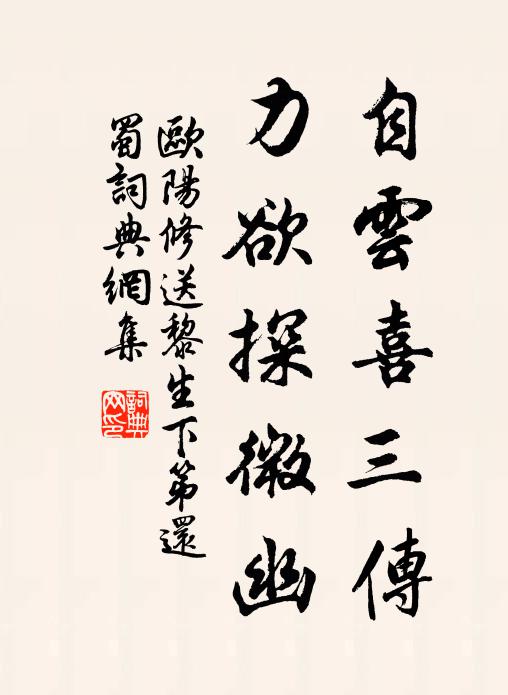 自雲喜三傳
力欲探微幽
歐陽修送黎生下第還
蜀詞典網集
詞典
网印